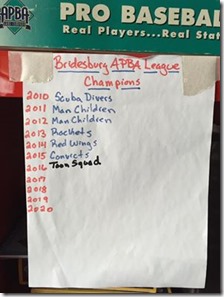 APBA
PRO BASEBAL
Real Players...Real Stat
Bridesburg APBA League
Champions
2010 Scuba Divers
2011 Man Children
2012 Man Children
2013 Rockets
2014 Red Wings
2015 Convicts
2016 Toon Squad
2017
2018
2019
2020